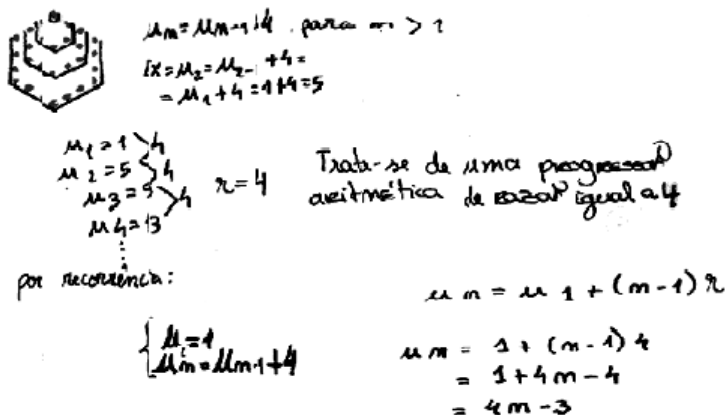 un = un-1+4, para n > 1
Ex = u2 = u2- +4 =
= u1 + 4 = 1+4=5
u1 = 1
u2 = 5
u3 = 9
u4 = 13
4
4
4
r = 4
Trata-se de uma progressão
aritmética de razão igual a 4
por recorrência:
u1 = 1
un = un-1+4
un = u1 + (n-1) r
un = 1 + (n-1) 4
= 1 + 4n - 4
= 4n - 3